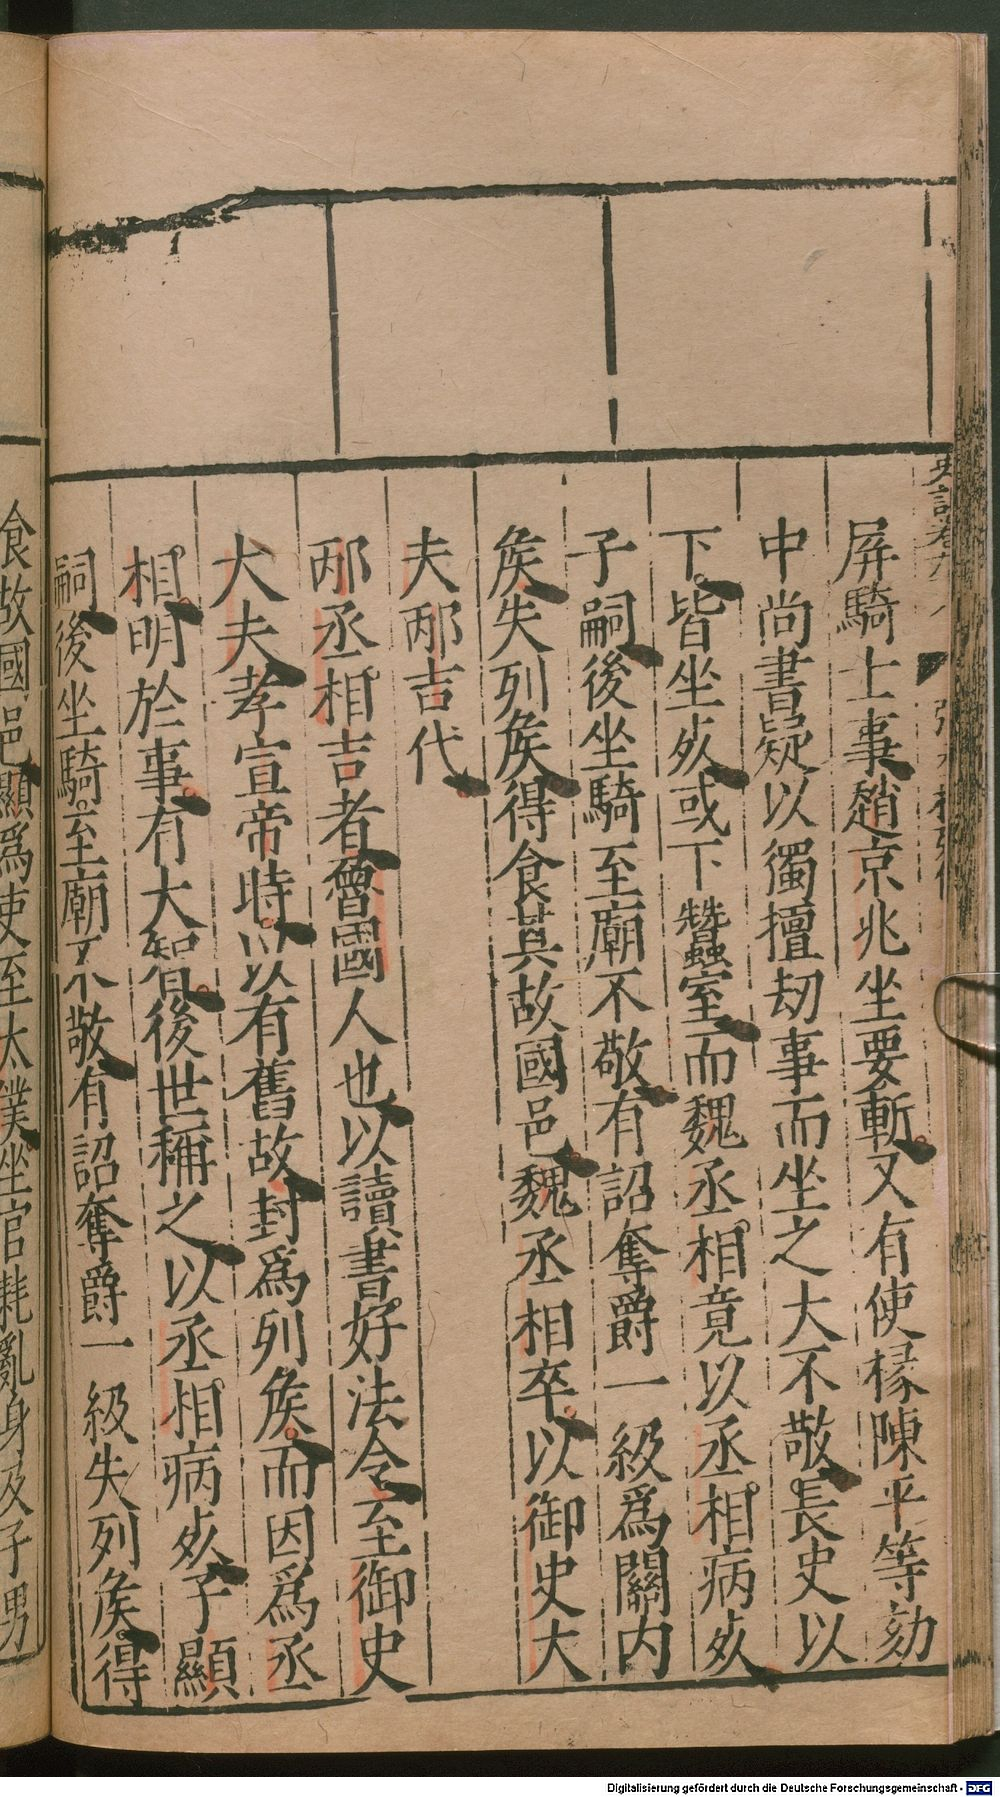 屏騎士事趙京兆坐要斬又有使椽陳平等劾
中尚書疑以獨擅刼事而坐之大不敬長史以
下皆坐㱙或下蠶室而魏丞相竟以丞相病㱙
子嗣後坐騎至廟不敬有詔奪爵一級爲關內
矦失列矦得食其故國邑魏丞相卒以御史大
夫邴吉代
邴丞相吉者魯國人也以讀書好法令至御史
大夫孝宣帝時以有舊故封爲列矦而因爲丞
相明於事有大智後世稱之以丞相病㱙子顯
嗣後坐騎至廟不敬有詔奪爵一級失列矦得
食故國邑顯爲吏至太僕坐官耗亂身及子男
Digitalisierung gefördert durch die Deutsche Forschungsgemeinschaft - DFG